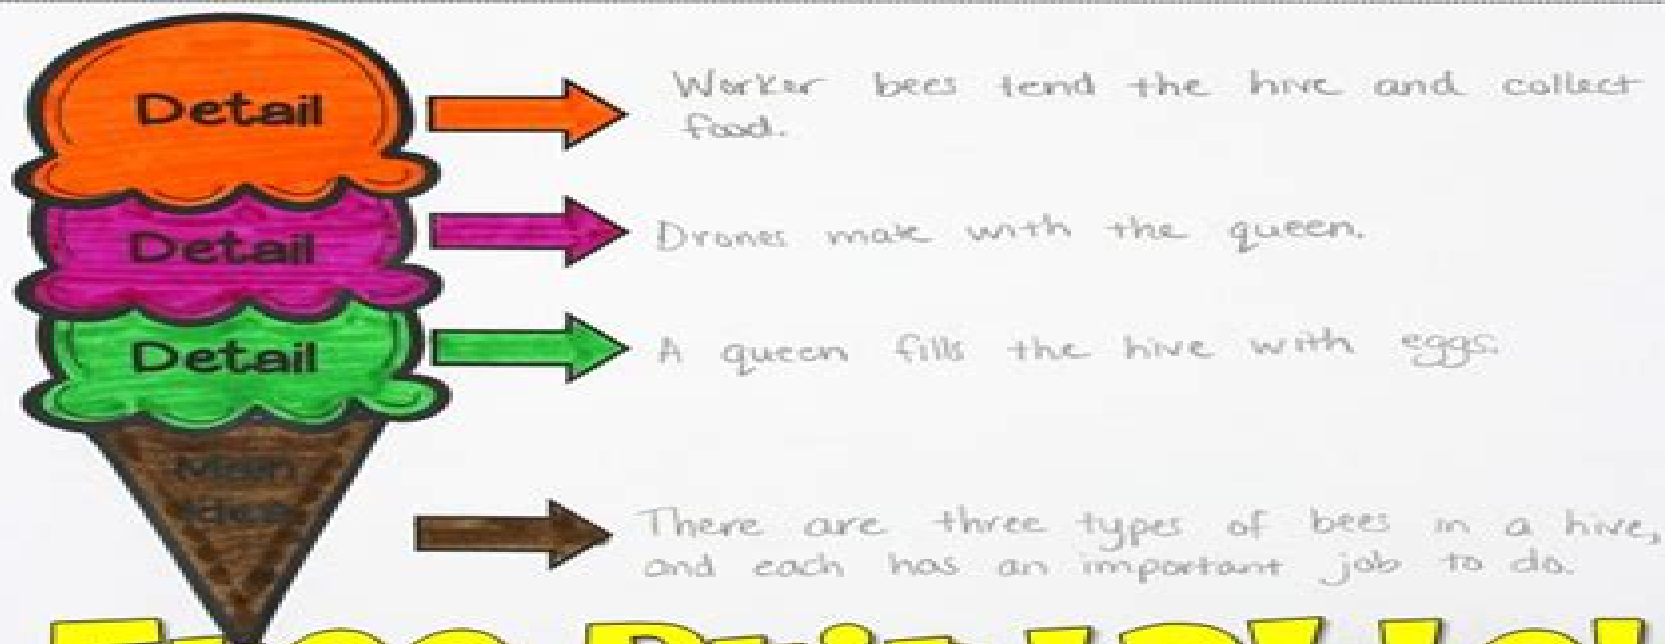 Detail
Worker bees tend the hive and collect
food.
Detail
Drones mate with the queen.
Detail
A queen fills the hive with eggs.
Main
Idea
There are three types of bees in a hive,
and each has an important job to do.